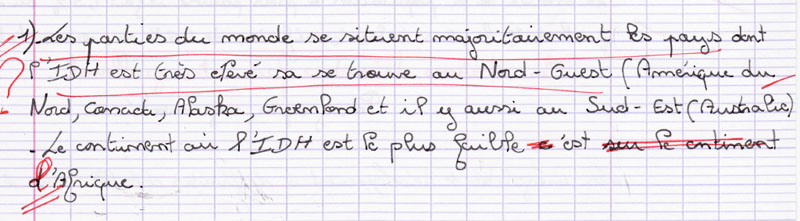 1) Les parties du monde se situent majoritairement les pays dont
l'IDH est très élevé sa se trouve au Nord-Ouest (Amérique du
Nord, Canada, Alaska, Groenland et il y aussi au Sud-Est (Australie)
- Le continent où l'IDH est le plus faible c'est sur le continent
d'Afrique.